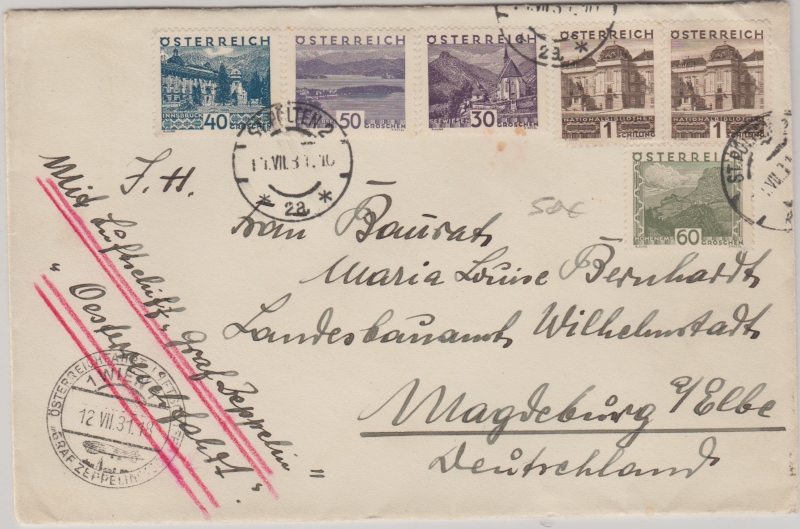 ÖSTERREICH ÖSTERREICH ÖSTERREICH ÖSTERREICH ÖSTERREICH
INNSBRUCK
40 GROSCHEN
50 GROSCHEN
30 GROSCHEN
NATIONALBIBLIOTHEK
1 SCHILLING
NATIONALBIBLIOTHEK
1 SCHILLING
ÖSTERREICH
HOHENEMS
60 GROSCHEN
ST. PÖLTEN 2
11.VII.31.10
* 2a *
.VII.31.10
* 2a *
ST. PÖLTEN 2
.VII.31
50€
Mit Luftschiff „Graf Zeppelin"
„Oesterreichfahrt".
J. H.
Frau Baurat
Maria Louise Bernhardt
Landesbauamt Wilhelmstadt
Magdeburg a/Elbe
Deutschland
ÖSTERREICHFAHRT
1 WIEN 1
12 VII.31.18
„GRAF ZEPPELIN"